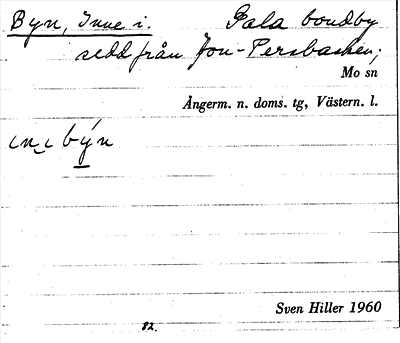 Byn, Inne i. Gala bondby
sedd från Jon-Persbacken;
Mo sn
Ångerm. n. doms. tg, Västern. l.
ını býn
Sven Hiller 1960
82.